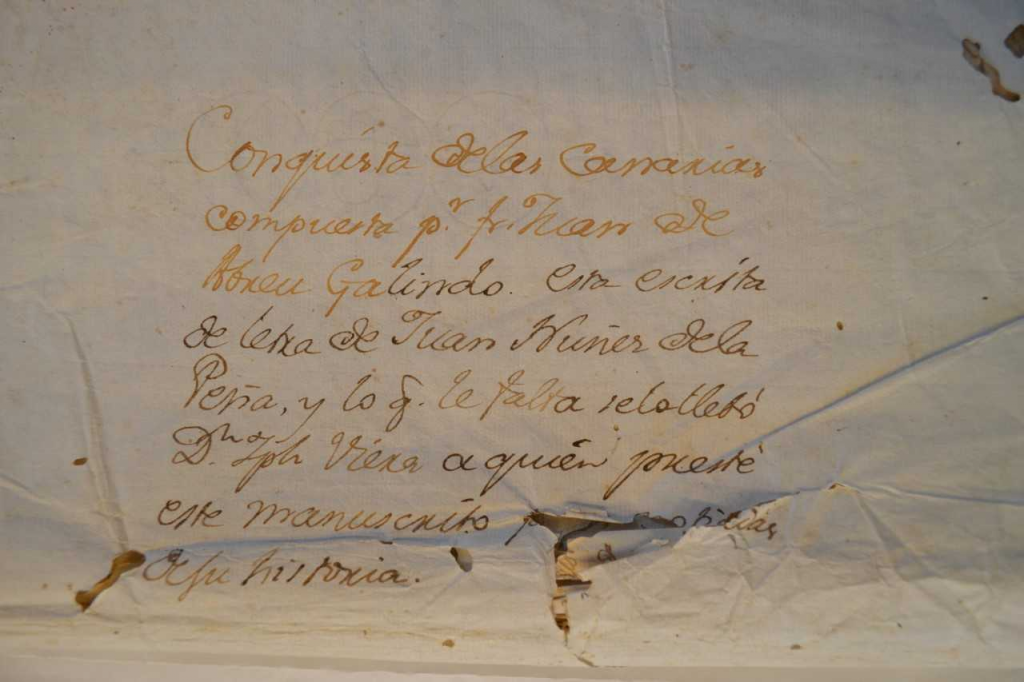 Conquista delas Canarias
compuesta p.r fr. Juan de
Abreu Galindo. esta escrita
de letra de Juan Nuñez dela
Peña, y lo q. le falta selo llebó
D.n Jph Viera a quien presté
este manuscrito noticias
de su historia.